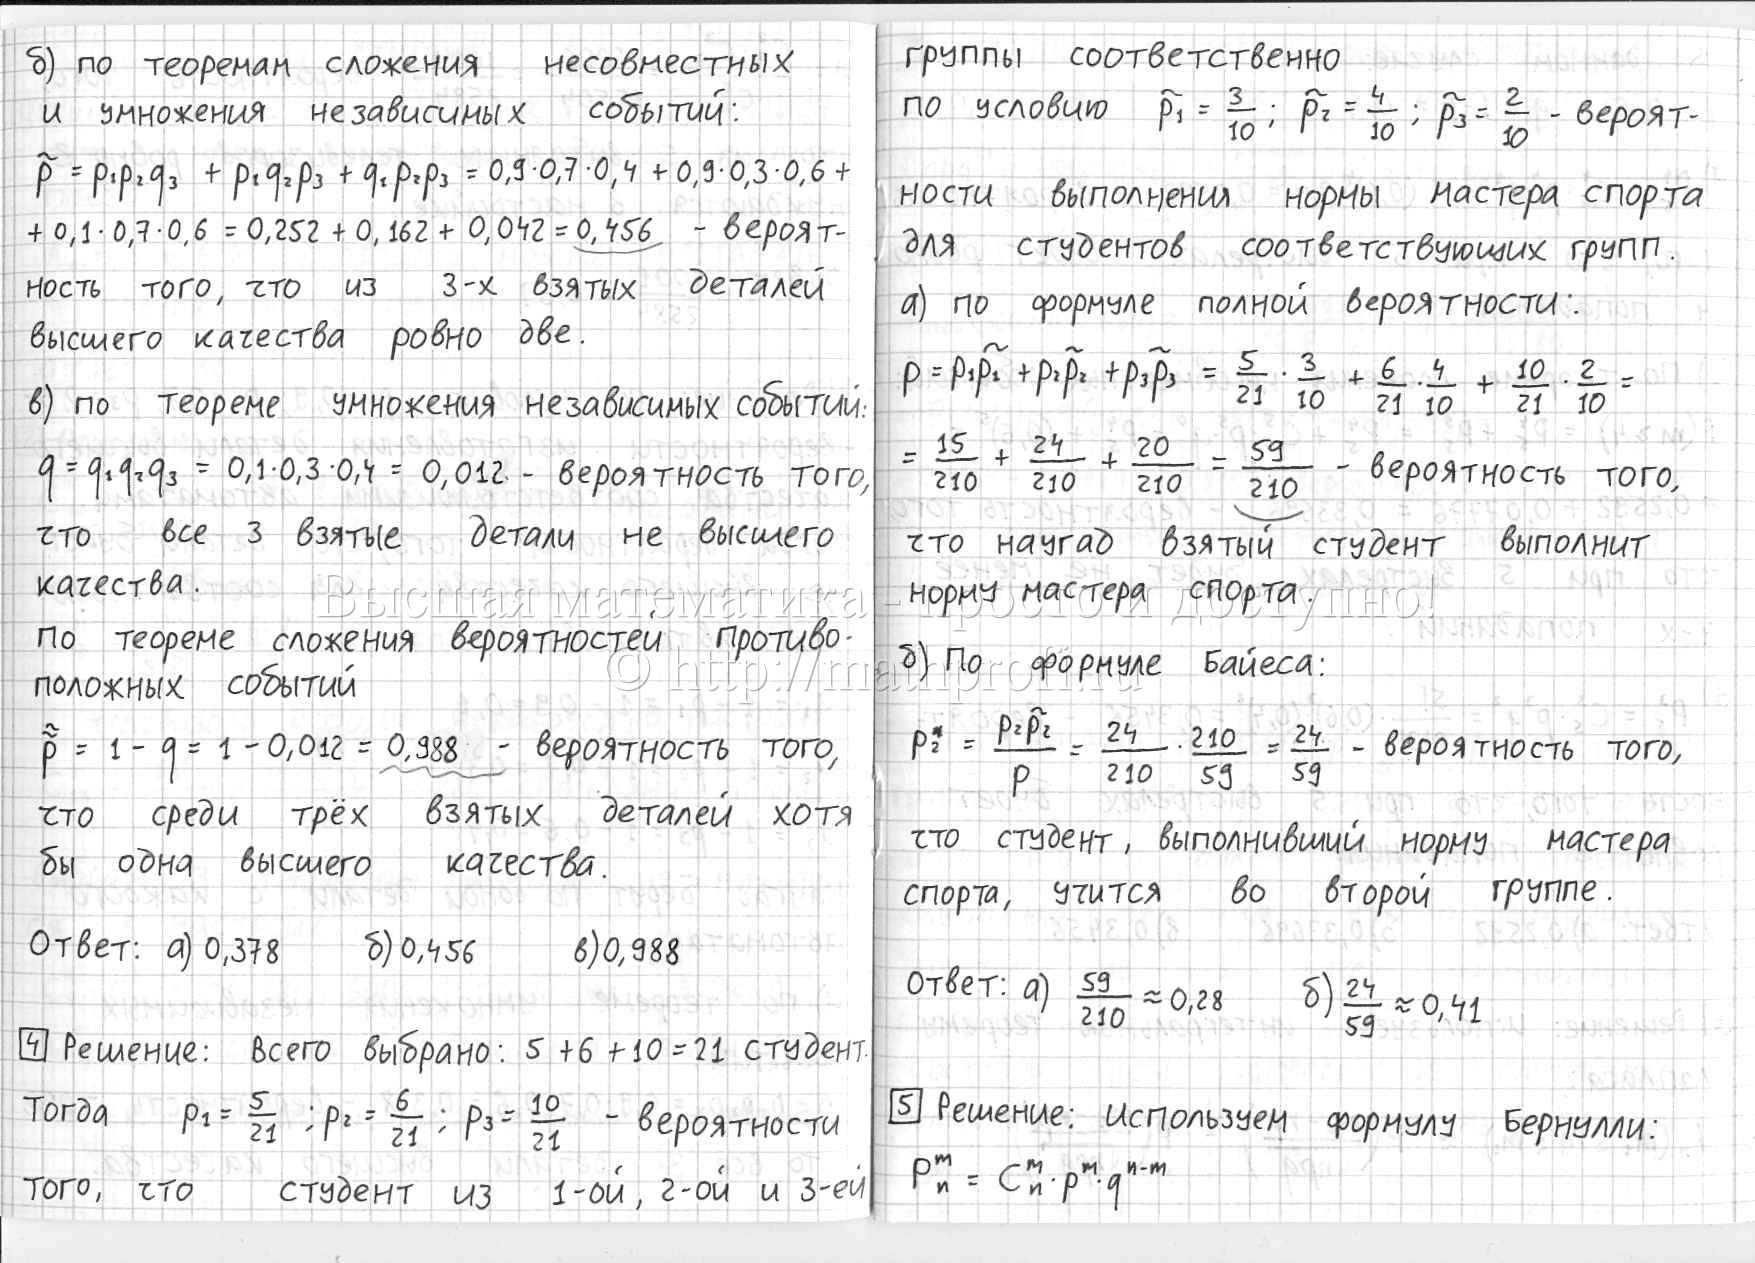 б) по теоремам сложения несовместных
и умножения независимых событий:
p̃ = p₁p₂q₃ + p₁q₂p₃ + q₁p₂p₃ = 0,9·0,7·0,4 + 0,9·0,3·0,6 +
+ 0,1·0,7·0,6 = 0,252 + 0,162 + 0,042 = 0,456 - вероят-
ность того, что из 3-х взятых деталей
высшего качества ровно две.
в) по теореме умножения независимых событий:
q = q₁q₂q₃ = 0,1·0,3·0,4 = 0,012 - вероятность того,
что все 3 взятые детали не высшего
качества.
По теореме сложения вероятностей противо-
положных событий
p̃̃ = 1 - q = 1 - 0,012 = 0,988 - вероятность того,
что среди трёх взятых деталей хотя
бы одна высшего качества.
Ответ: а) 0,378 б) 0,456 в) 0,988
4 Решение: Всего выбрано: 5 + 6 + 10 = 21 студент.
Тогда p₁ = 5/21 ; p₂ = 6/21 ; p₃ = 10/21 - вероятности
того, что студент из 1-ой, 2-ой и 3-ей
группы соответственно
по условию p̃₁ = 3/10 ; p̃₂ = 4/10 ; p̃₃ = 2/10 - вероят-
ности выполнения нормы мастера спорта
для студентов соответствующих групп.
а) по формуле полной вероятности:
p = p₁p̃₁ + p₂p̃₂ + p₃p̃₃ = 5/21 · 3/10 + 6/21 · 4/10 + 10/21 · 2/10 =
= 15/210 + 24/210 + 20/210 = 59/210 - вероятность того,
что наугад взятый студент выполнит
норму мастера спорта.
б) По формуле Байеса:
p₂* = p₂p̃₂/p = 24/210 · 210/59 = 24/59 - вероятность того,
что студент, выполнивший норму мастера
спорта, учится во второй группе.
Ответ: а) 59/210 ≈ 0,28 б) 24/59 ≈ 0,41
5 Решение: используем формулу Бернулли:
Pₙᵐ = Cₙᵐ · pᵐ · qⁿ⁻ᵐ
Высшая математика - просто и доступно!
© http://mathprofi.ru